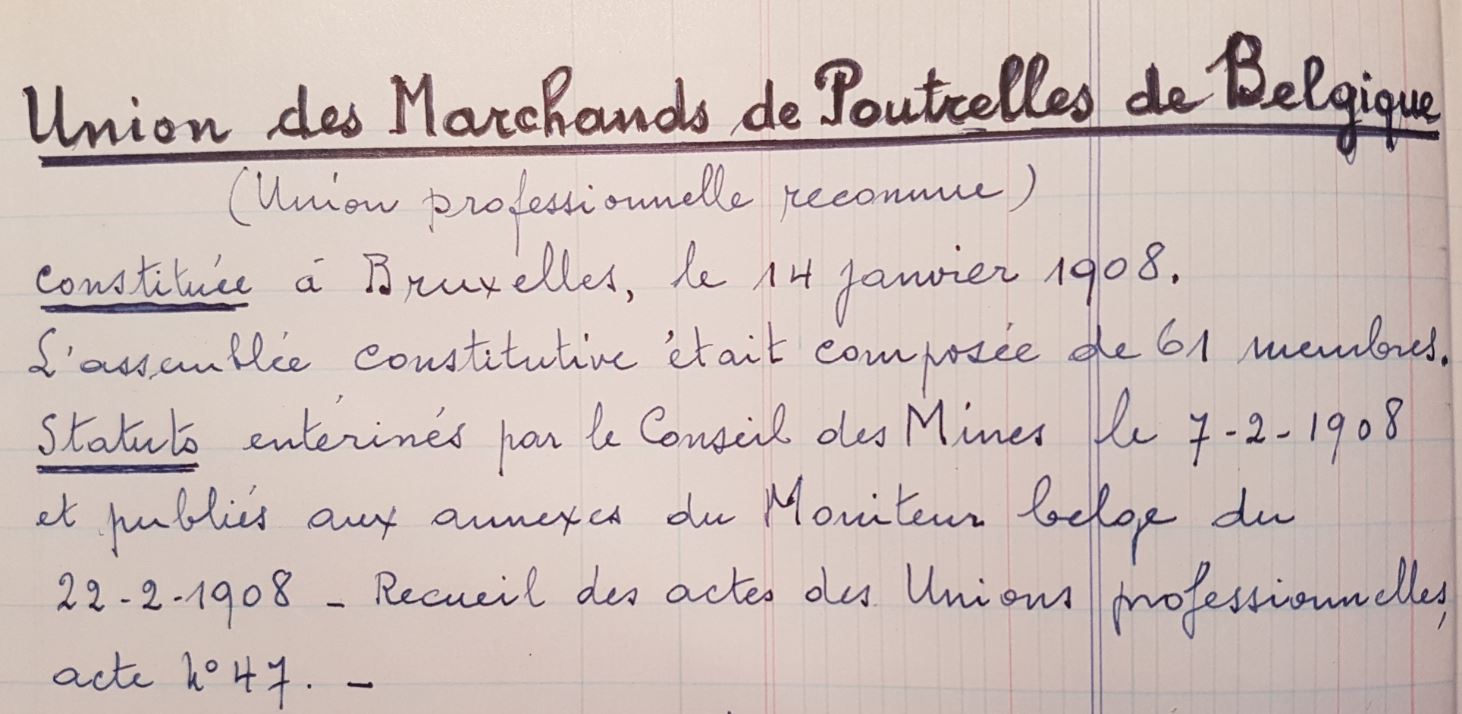 Union des Marchands de Poutrelles de Belgique
(Union professionnelle reconnue)
constituée à Bruxelles, le 14 janvier 1908.
L'assemblée constitutive était composée de 61 membres.
Statuts entérinés par le Conseil des Mines le 7-2-1908
et publiés aux annexes du Moniteur belge du
22-2-1908 - Recueil des actes des Unions professionnelles,
acte n° 47. -